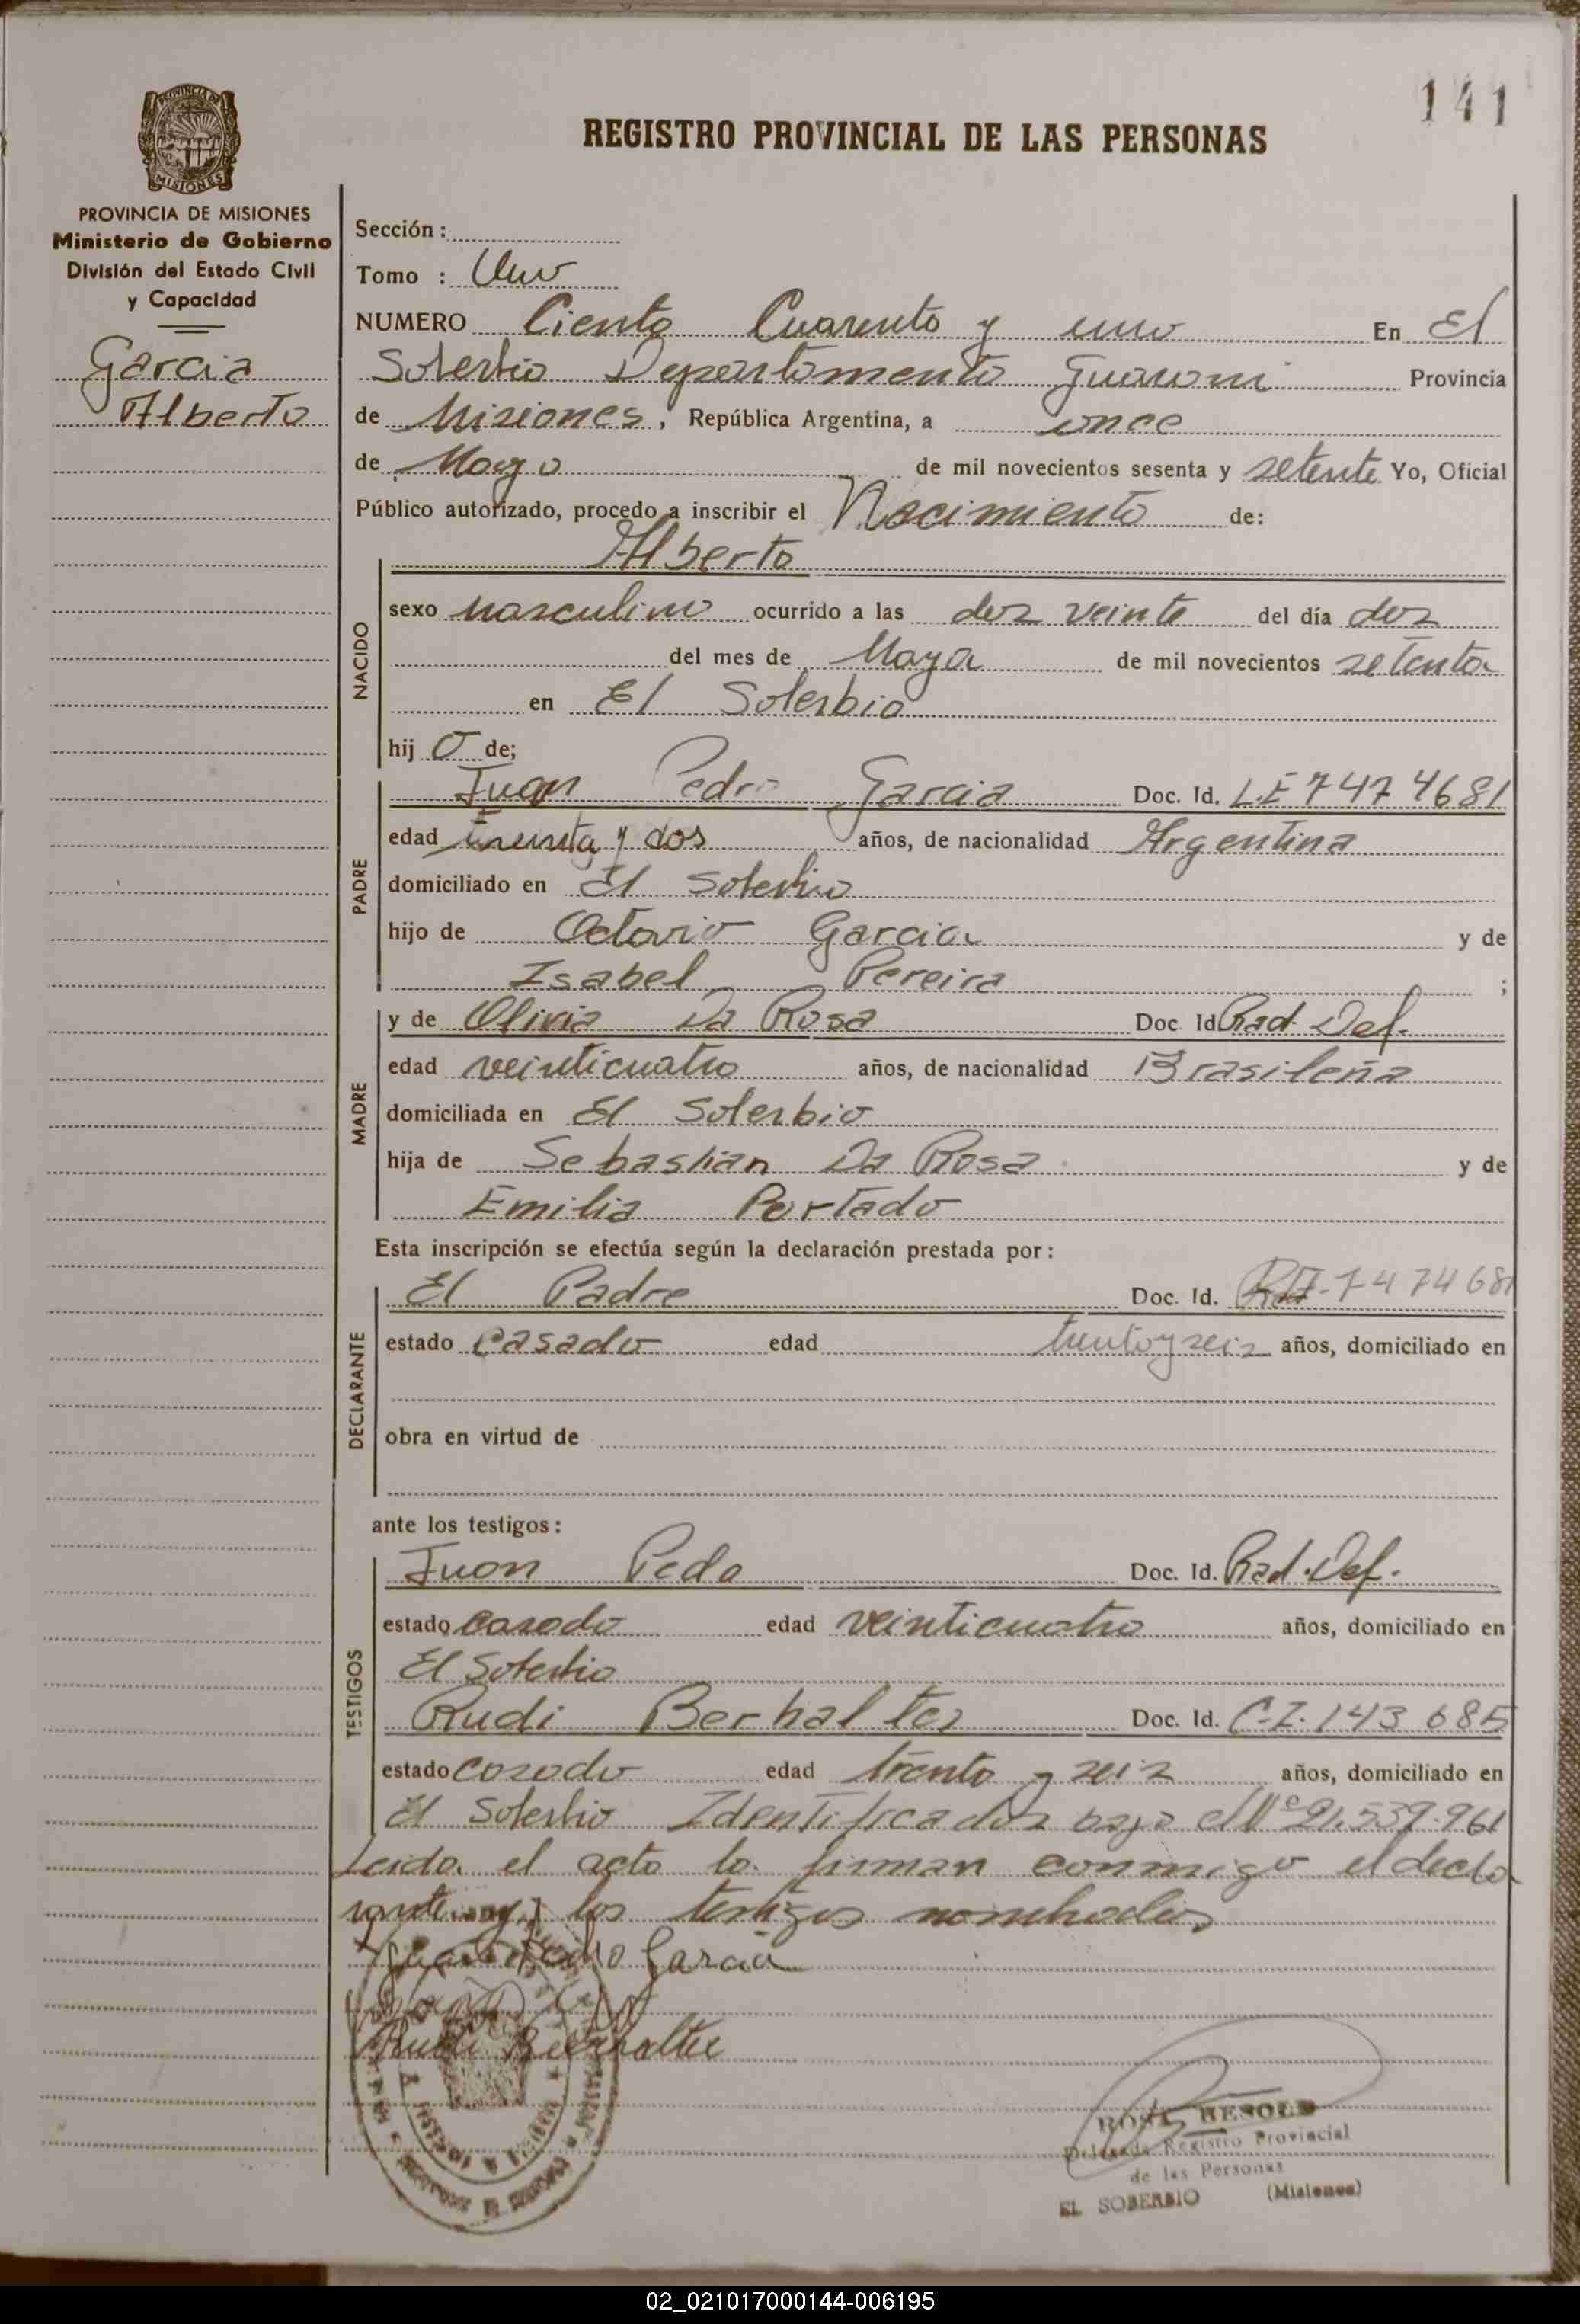 141
REGISTRO PROVINCIAL DE LAS PERSONAS
PROVINCIA DE MISIONES
Ministerio de Gobierno
División del Estado Civil
y Capacidad
Garcia
Alberto
Sección :
Tomo : Uno
NUMERO Ciento Cuarento y uno En El
Soberbio Departamento Guarani Provincia
de Misiones, República Argentina, a once
de Mayo de mil novecientos sesenta y setenta Yo, Oficial
Público autorizado, procedo a inscribir el Nacimiento de:
NACIDO
Alberto
sexo masculino ocurrido a las dos veinte del día dos
del mes de Mayo de mil novecientos setenta
en El Soberbio
hij o de;
PADRE
Juan Pedro Garcia Doc. Id. L.E 7474681
edad treinta y dos años, de nacionalidad Argentina
domiciliado en El Soberbio
hijo de Octavio Garcia y de
Isabel Pereira ;
MADRE
y de Olivia Da Rosa Doc Id Rad. Def.
edad veinticuatro años, de nacionalidad Brasileña
domiciliada en El Soberbio
hija de Sebastian Da Rosa y de
Emilia Portado
Esta inscripción se efectúa según la declaración prestada por :
DECLARANTE
El Padre Doc. Id. 7474681
estado Casado edad años, domiciliado en
obra en virtud de
ante los testigos :
TESTIGOS
Juan Doc. Id. Rad. Def.
estado casado edad veinticuatro años, domiciliado en
El Soberbio
Rudi Berhalter Doc. Id. C.I. 143 685
estado casado edad trenta y seis años, domiciliado en
El Soberbio Identificados bajo el Nº 21.539.961
Leida el acta la firman conmigo el decla
rante y los testigos nombrados
Juan Pedro Garcia
Rudi Berhalter
ROSA
Delegada Registro Provincial
de las Personas
EL SOBERBIO (Misiones)
02_021017000144-006195